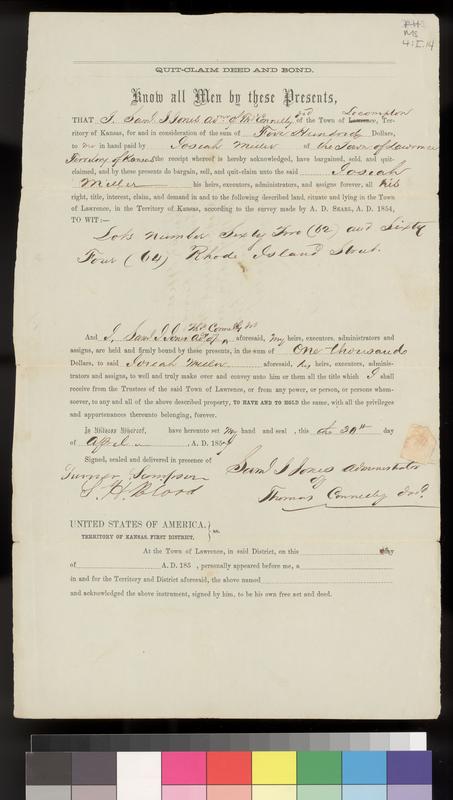 Ms
4:I.14
QUIT-CLAIM DEED AND BOND.
Know all Men by these Presents,
Lecompton
THAT I, Saml J Jones Admr of Th Connelly decd of the Town of Lawrence, Ter-
ritory of Kansas, for and in consideration of the sum of Five Hundred Dollars,
to me in hand paid by Josiah Miller of the Town of Lawrence
Territory of Kansas the receipt whereof is hereby acknowledged, have bargained, sold, and quit-
claimed, and by these presents do bargain, sell, and quit-claim unto the said Josiah
Miller his heirs, executors, administrators, and assigns forever, all his
right, title, interest, claim, and demand in and to the following described land, situate and lying in the Town
of Lawrence, in the Territory of Kansas, according to the survey made by A. D. SEARL, A. D. 1854,
TO WIT:—
Lots number Sixty Two (62) and Sixty
Four (64) Rhode Island Street.
Th Connelly
And I, Saml J Jones Ad of aforesaid, my heirs, executors, administrators and
assigns, are held and firmly bound by these presents, in the sum of One thousands
Dollars, to said Josiah Miller aforesaid, his heirs, executors, adminis-
trators and assigns, to well and truly make over and convey unto him or them all the title which I shall
receive from the Trustees of the said Town of Lawrence, or from any power, or person, or persons whom-
soever, to any and all of the above described property, TO HAVE AND TO HOLD the same, with all the privileges
and appurtenances thereunto belonging, forever.
In Witness Whereof, have hereunto set my hand and seal, this the 30th day
of April, A. D. 185
Signed, sealed and delivered in presence of
Turner Sampson
S. H. Blood
Saml J Jones Administrator
of
Thomas Connelly decd.
UNITED STATES OF AMERICA,
TERRITORY OF KANSAS, FIRST DISTRICT, } ss.
At the Town of Lawrence, in said District, on this day
of A. D. 185 , personally appeared before me, a
in and for the Territory and District aforesaid, the above named
and acknowledged the above instrument, signed by him, to be his own free act and deed.